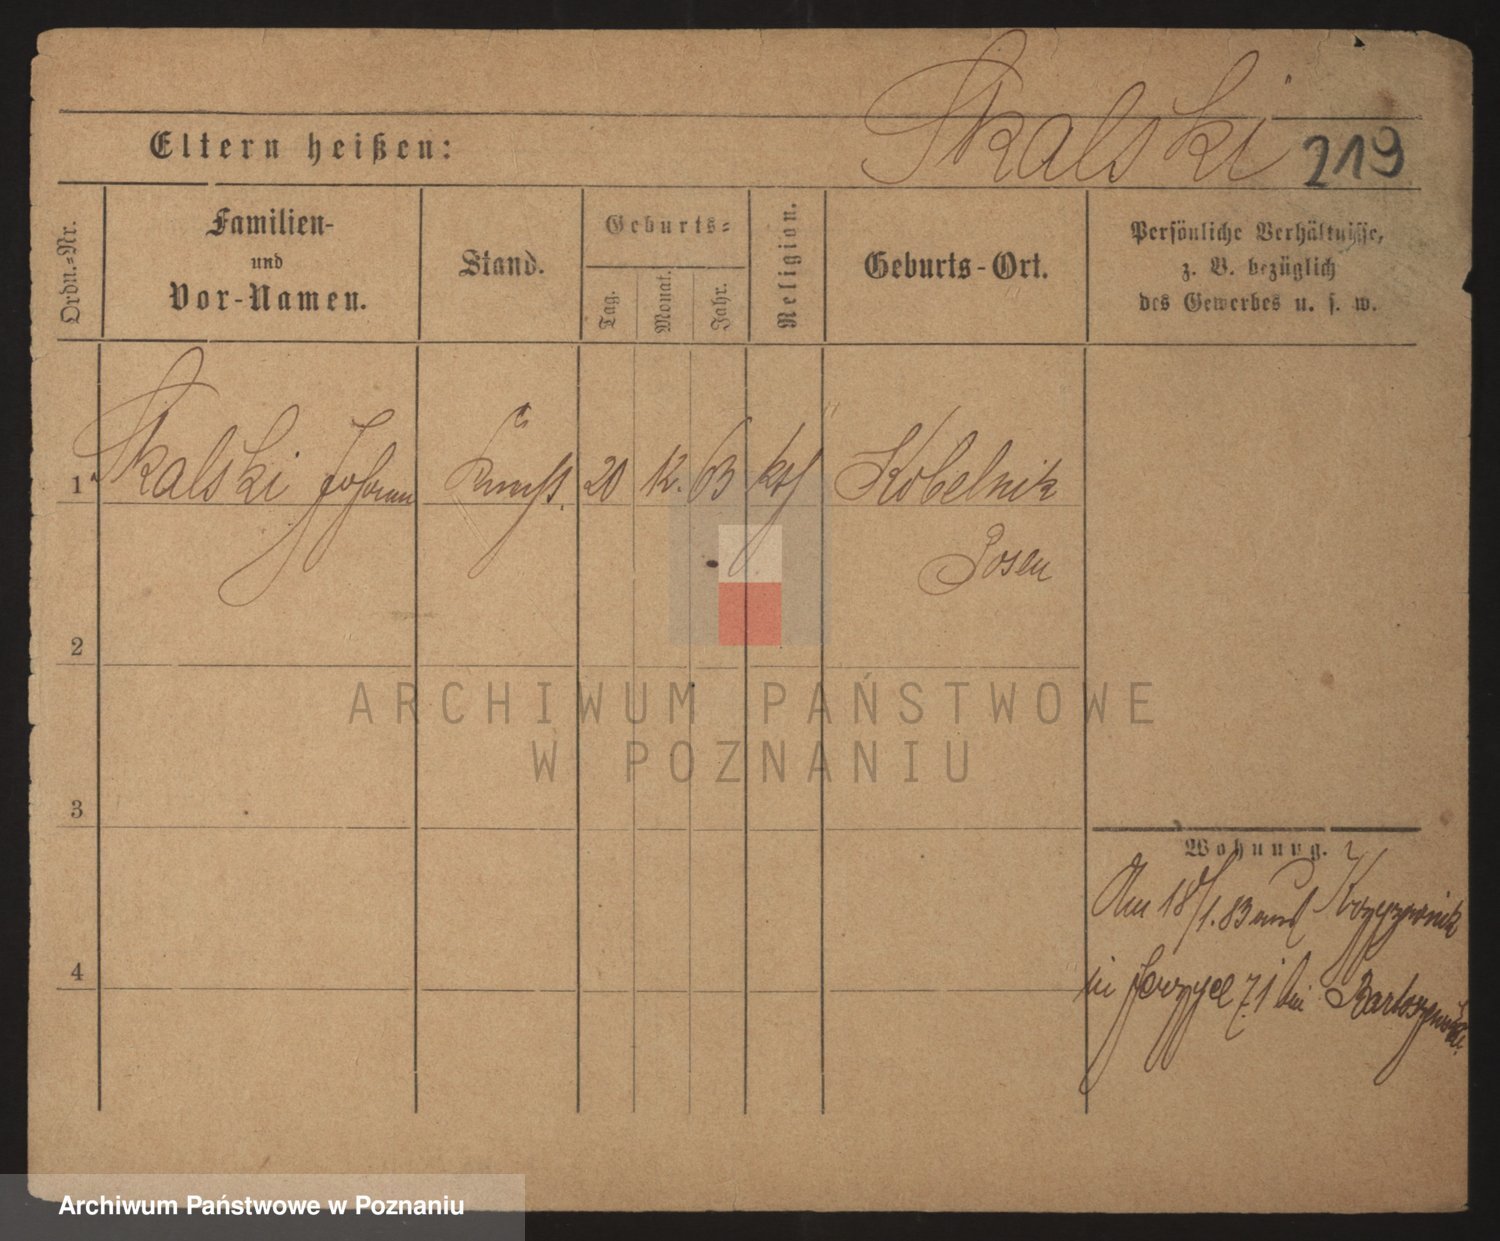 Skalski
219
Eltern heißen:
Ordn.-Nr.
Familien-
und
Vor-Namen.
Stand.
Geburts-
Tag.
Monat.
Jahr.
Religion.
Geburts-Ort.
Persönliche Verhältnisse,
z. B. bezüglich
des Gewerbes u. s. w.
1 Skalski Johann 20 12. 63 kth Kobelnik
Posen
2
ARCHIWUM PAŃSTWOWE
W POZNANIU
3
Wohnung.
Am 18/1.83 Krzyzownik
in 71 bei Bartoszewski.
4
Archiwum Państwowe w Poznaniu